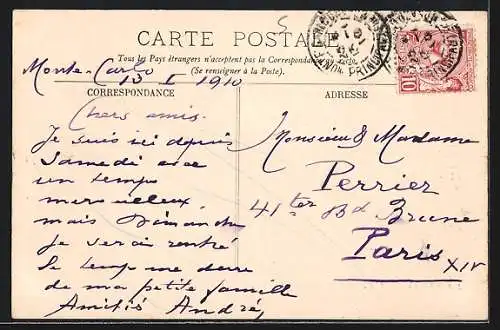 5
CARTE POSTALE
Tous les Pays étrangers n'acceptent pas la Correspondance
(Se renseigner à la Poste).
Monte-Carlo
13 I 1910
CORRESPONDANCE
ADRESSE
Chers amis.
Je suis ici depuis
Samedi avec
un temps
merveilleux
mais Dimanche
je serai rentré
le temps me dure
de ma petite famille
Amitiés André
Monsieur & Madame
Perrier
41ter Bd Brune
Paris
XIV
10